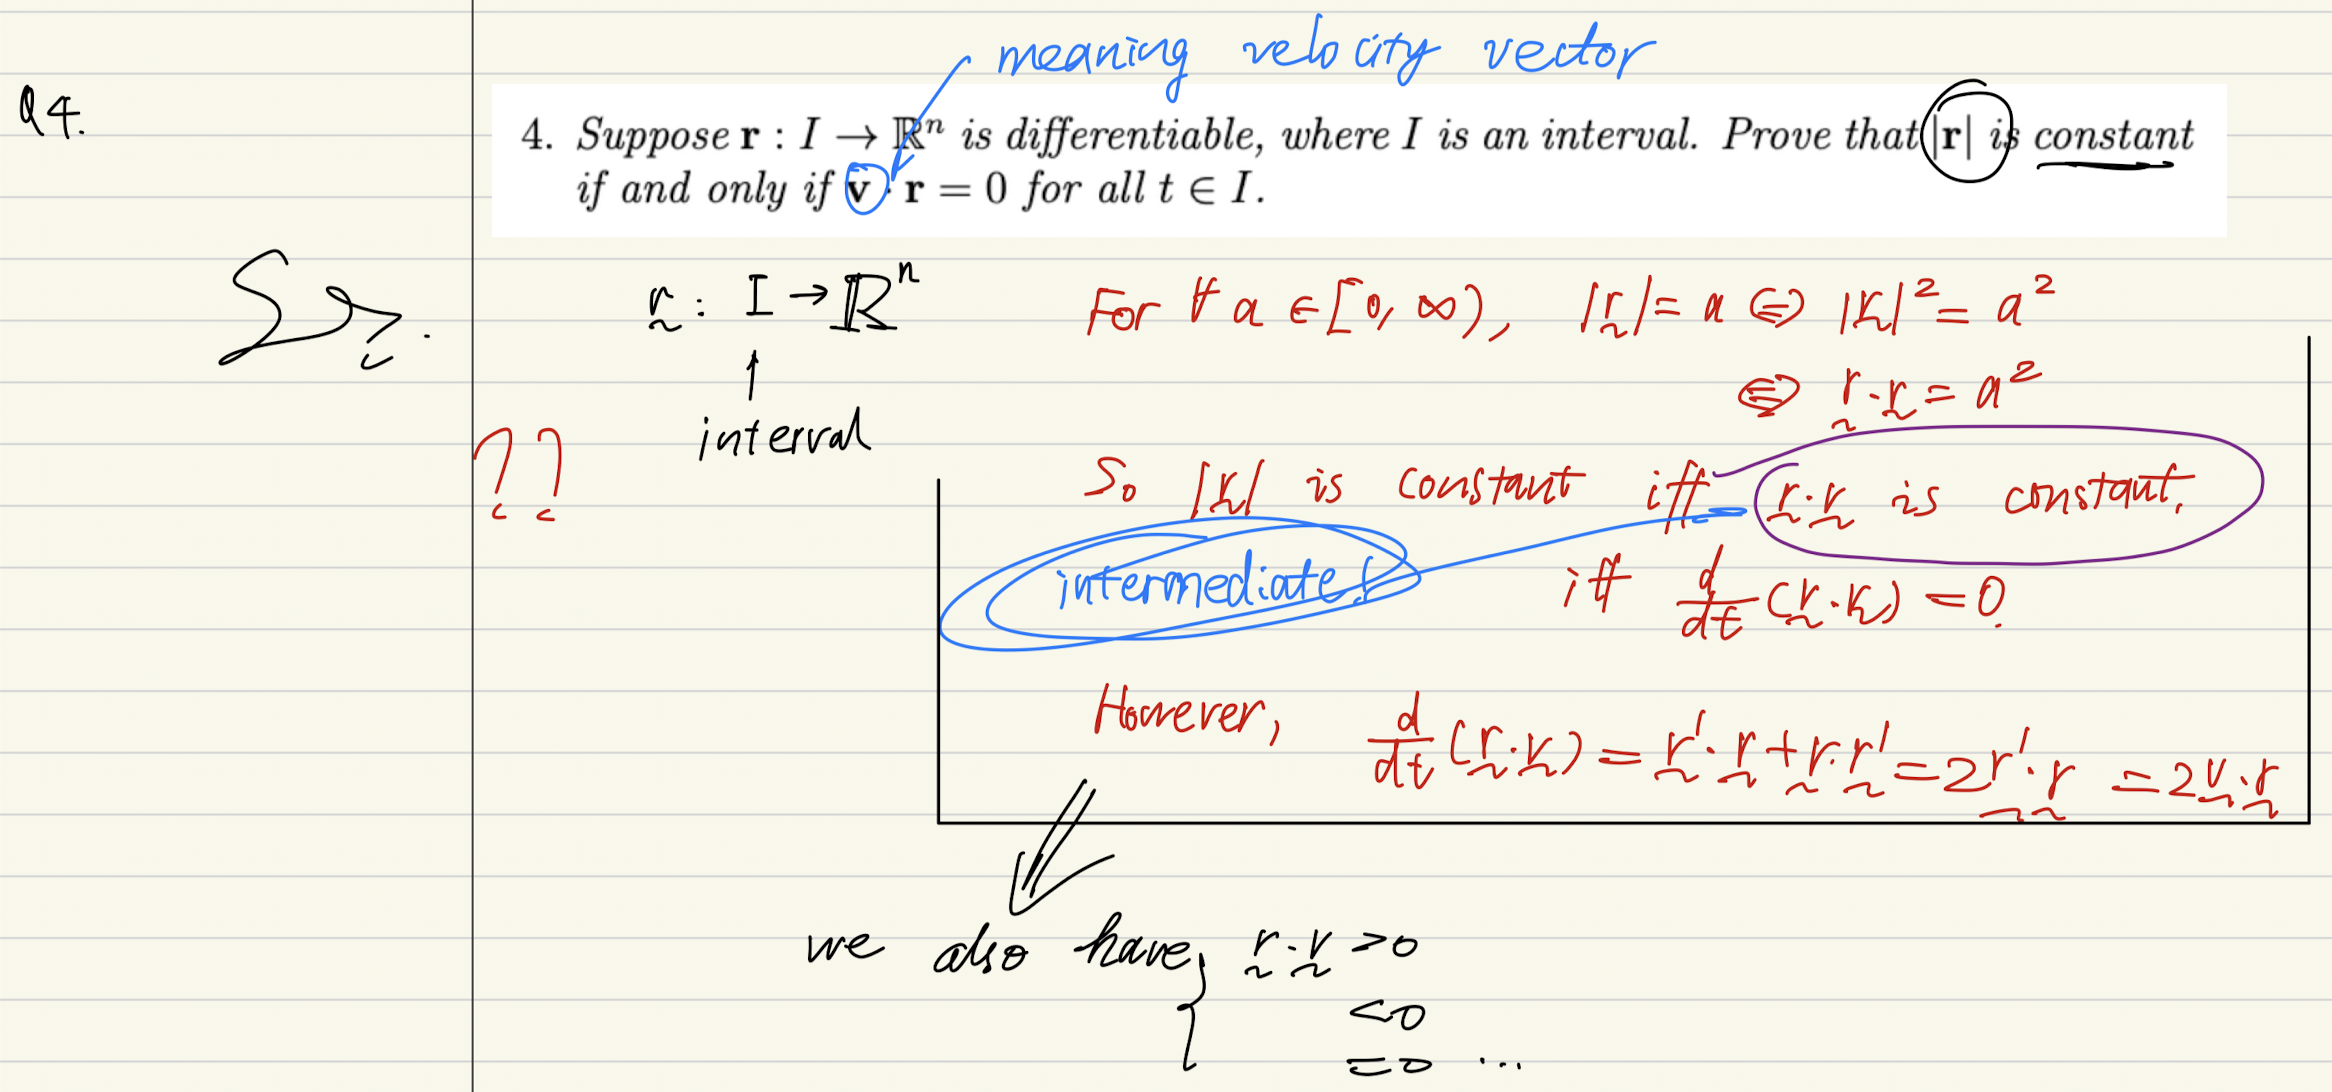 meaning velocity vector
Q4.
4. Suppose r : I → ℝⁿ is differentiable, where I is an interval. Prove that |r| is constant
if and only if v · r = 0 for all t ∈ I.
r : I → ℝⁿ
For ∀ a ∈ [0, ∞), |r| = a ⇔ |r|² = a²
⇔ r · r = a²
↑
interval
??
So |r| is constant iff r · r is constant.
intermediate!
iff d/dt (r · r) = 0.
However, d/dt (r · r) = r' · r + r · r' = 2r' · r = 2v · r
we also have, { r · r > 0
< 0
= 0 ...